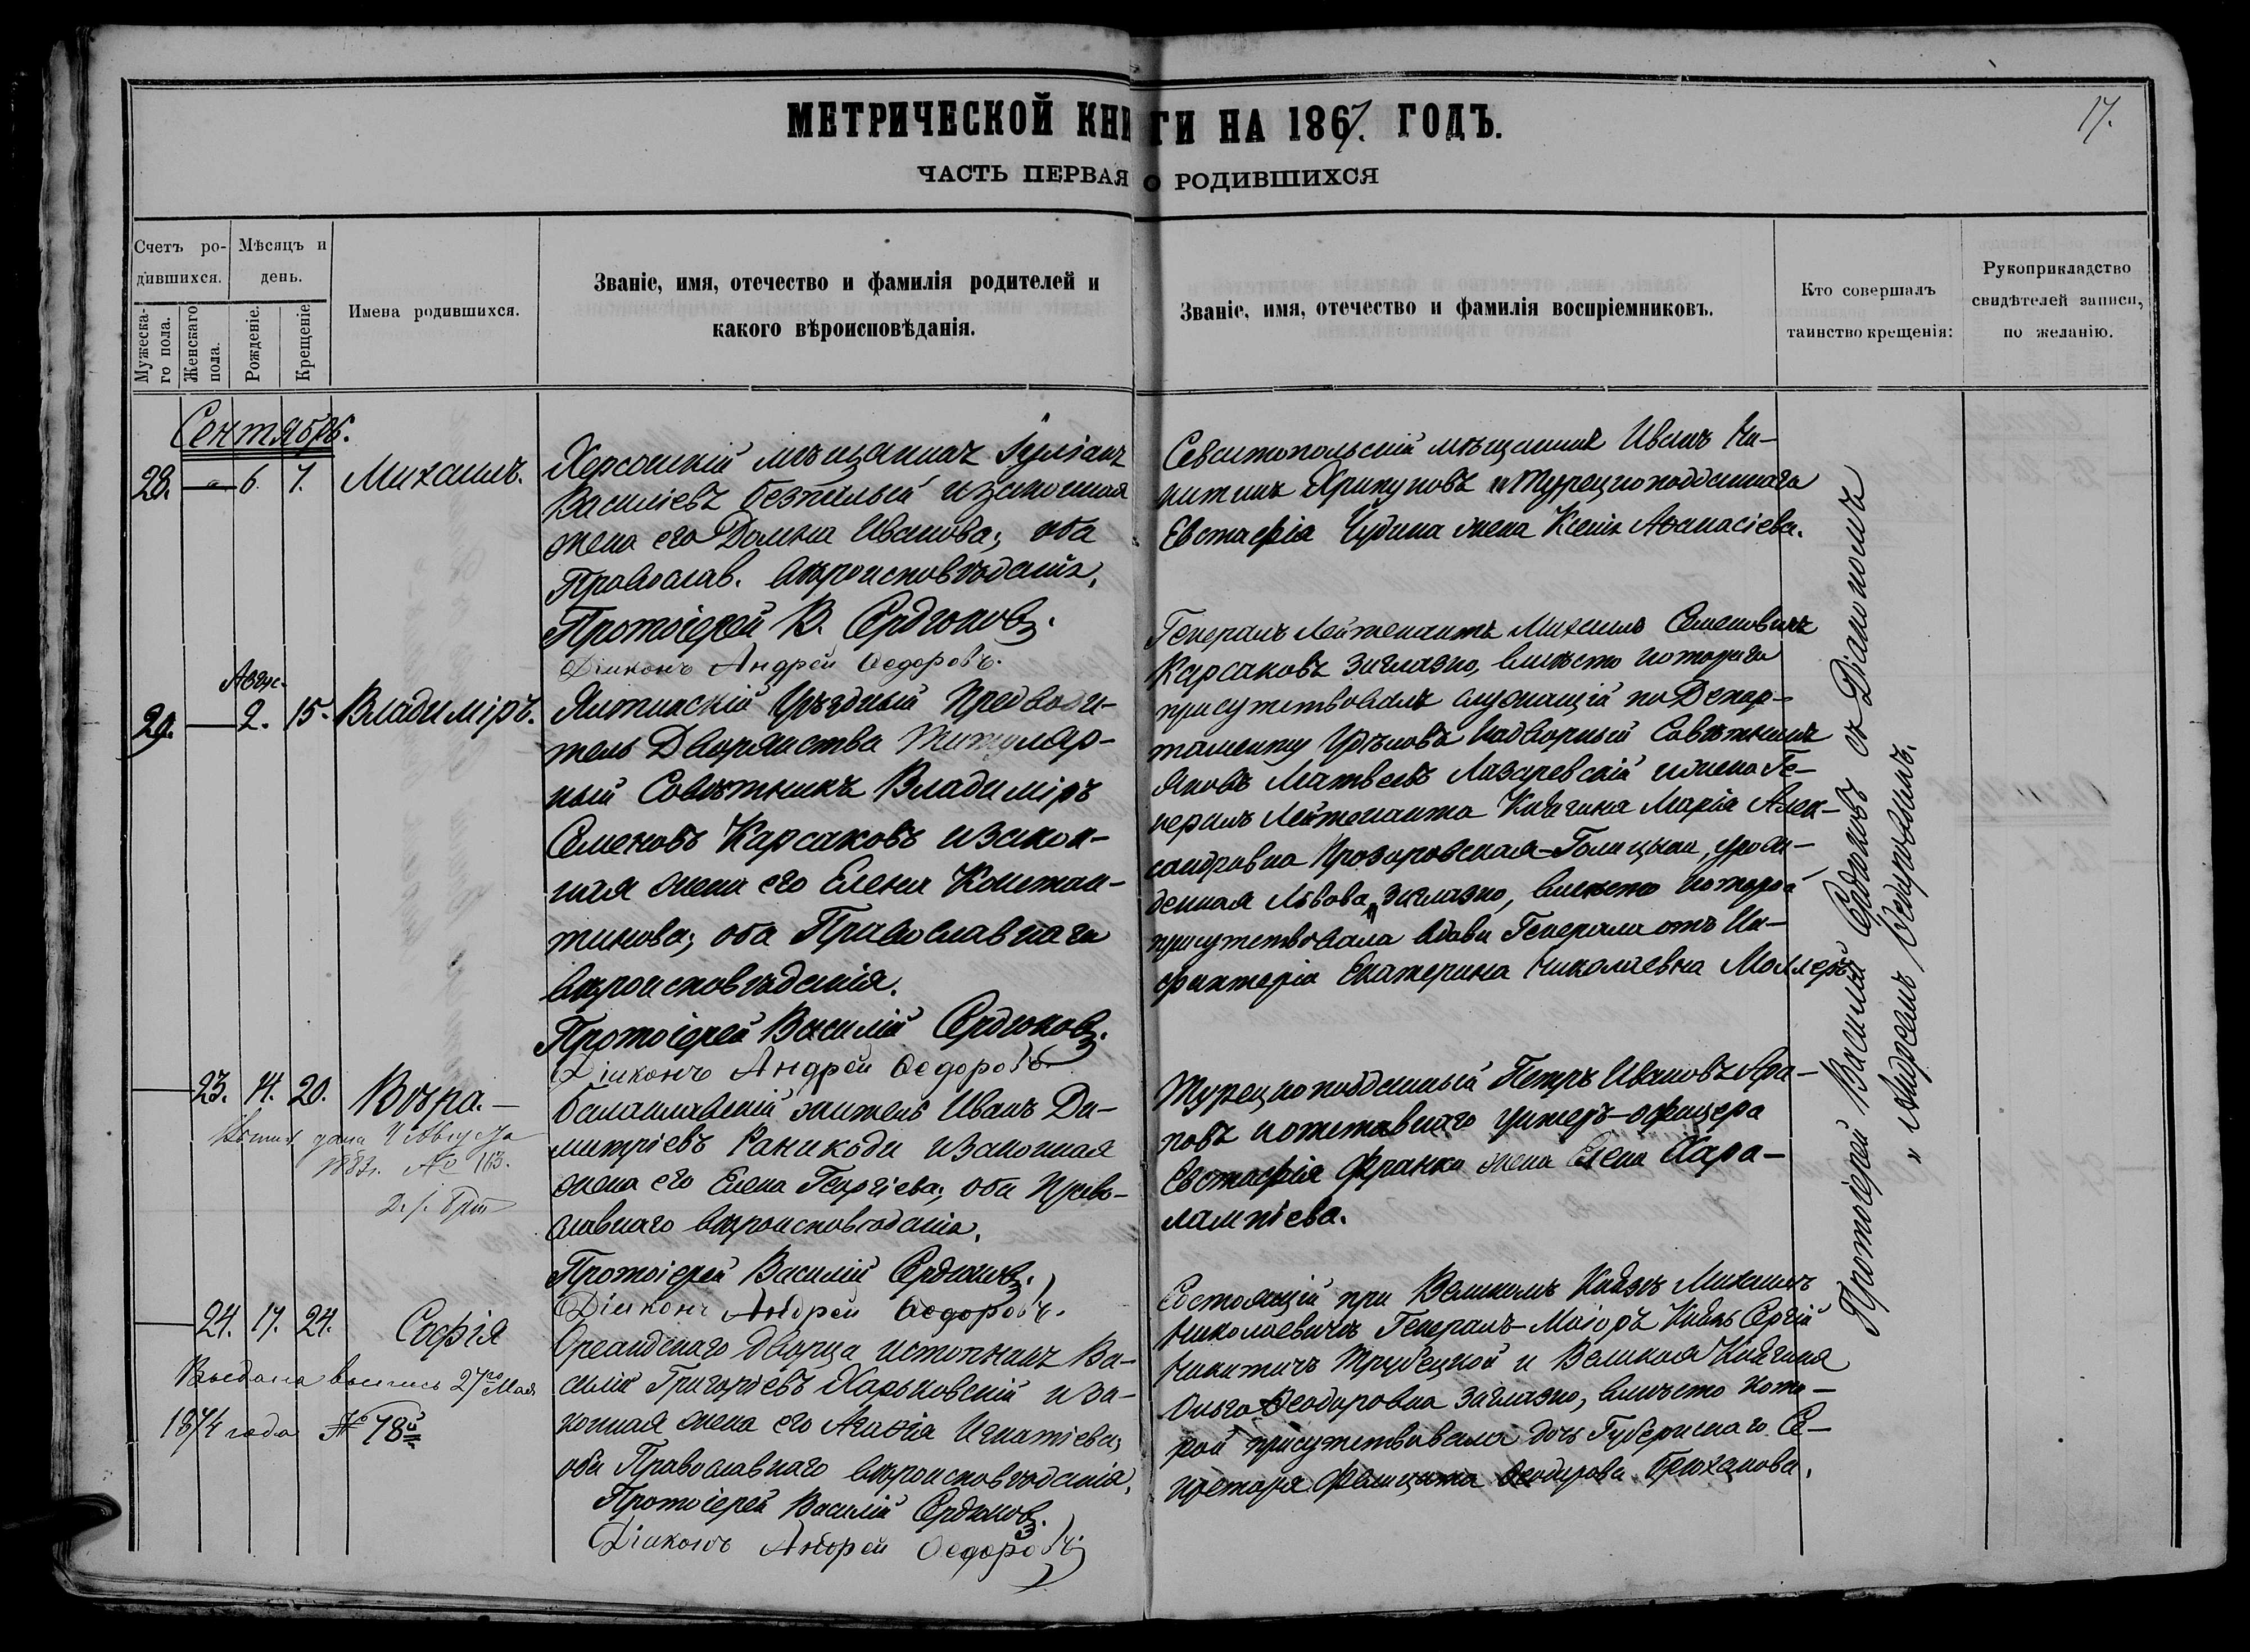 МЕТРИЧЕСКОЙ КНИГИ НА 1867. ГОДЪ.
17.
ЧАСТЬ ПЕРВАЯ О РОДИВШИХСЯ
Счетъ ро-
дившихся.
Мужеска-
го пола.
Женскаго
пола.
Мѣсяцъ и
день.
Рожденіе.
Крещеніе
Имена родившихся.
Званіе, имя, отечество и фамилія родителей и
какого вѣроисповѣданія.
Званіе, имя, отечество и фамилія воспріемниковъ.
Кто совершалъ
таинство крещенія:
Рукоприкладство
свидѣтелей записи,
по желанію.
Сентябрь.
28. — 6. 7. Михаилъ.
Херсонскій мѣщанинъ Іуліанъ
Василіевъ и законная
жена его Домна Иванова; оба
Православ. вѣроисповѣданія.
Протоіерей В. Сердюковъ.
Діаконъ Андрей Ѳедоровъ.
Севастопольскій мѣщанинъ Иванъ Ни-
китинъ Хрипуновъ и Турецкоподданнаго
Евстафія Чудина жена Ксенія Аѳанасіева.
Авгус.
29. — 2. 15. Владиміръ.
Ялтинскій Уѣздный Предводи-
тель Дворянства Титуляр-
ный Совѣтникъ Владиміръ
Семеновъ Карсаковъ и закон-
ная жена его Елена Констан-
тинова; оба Православнаго
вѣроисповѣданія.
Протоіерей Василій Сердюковъ.
Діаконъ Андрей Ѳедоровъ
Генералъ Лейтенантъ Михаилъ Семеновичъ
Карсаковъ заглазно, вмѣсто котораго
присутствовалъ служащій по Депар-
таменту Удѣловъ Надворный Совѣтникъ
Яковъ Матвеевъ Лазаревскій и жена Ге-
нералъ Лейтенанта Княгиня Марія Алек-
сандровна Прозоровская-Голицына, урож-
денная Львова, заглазно, вмѣсто которой
присутствовала вдова Генерала отъ Ин-
фантеріи Екатерина Николаевна Моллеръ
— 23. 14. 20. Вѣра. —
дана 4 Августа
1883г. № 163.
Балаклавскій житель Иванъ Ди-
митріевъ и законная
жена его Елена Георгіева; оба Право-
славнаго вѣроисповѣданія.
Протоіерей Василій Сердюковъ.
Діаконъ Андрей Ѳедоровъ.
Турецкоподданный Петръ Ивановъ Ара-
повъ и отставнаго унтеръ-офицера
Евстафія Франка жена Елена Хара-
лампіева.
— 24. 17. 24. Софія
Выдана выпись 27го Мая
1874 года № 78й
Ореандскаго Дворца истопникъ Ва-
силій Григоріевъ Харьковскій и за-
конная жена его Агаѳія Игнатіева;
оба Православнаго вѣроисповѣданія.
Протоіерей Василій Сердюковъ.
Діаконъ Андрей Ѳедоровъ
Состоящій при Великомъ Князѣ Михаилѣ
Николаевичѣ Генералъ-Маіоръ Князь Сергій
Никитичъ Трубецкой и Великая Княгиня
Ольга Ѳеодоровна заглазно, вмѣсто кото-
рой присутствовала дочь Губернскаго Се-
кретаря Фелицата Ѳеодорова Брюханова.
Протоіерей Василій Сердюковъ съ Діакономъ
" Андреемъ Ѳедоровымъ.